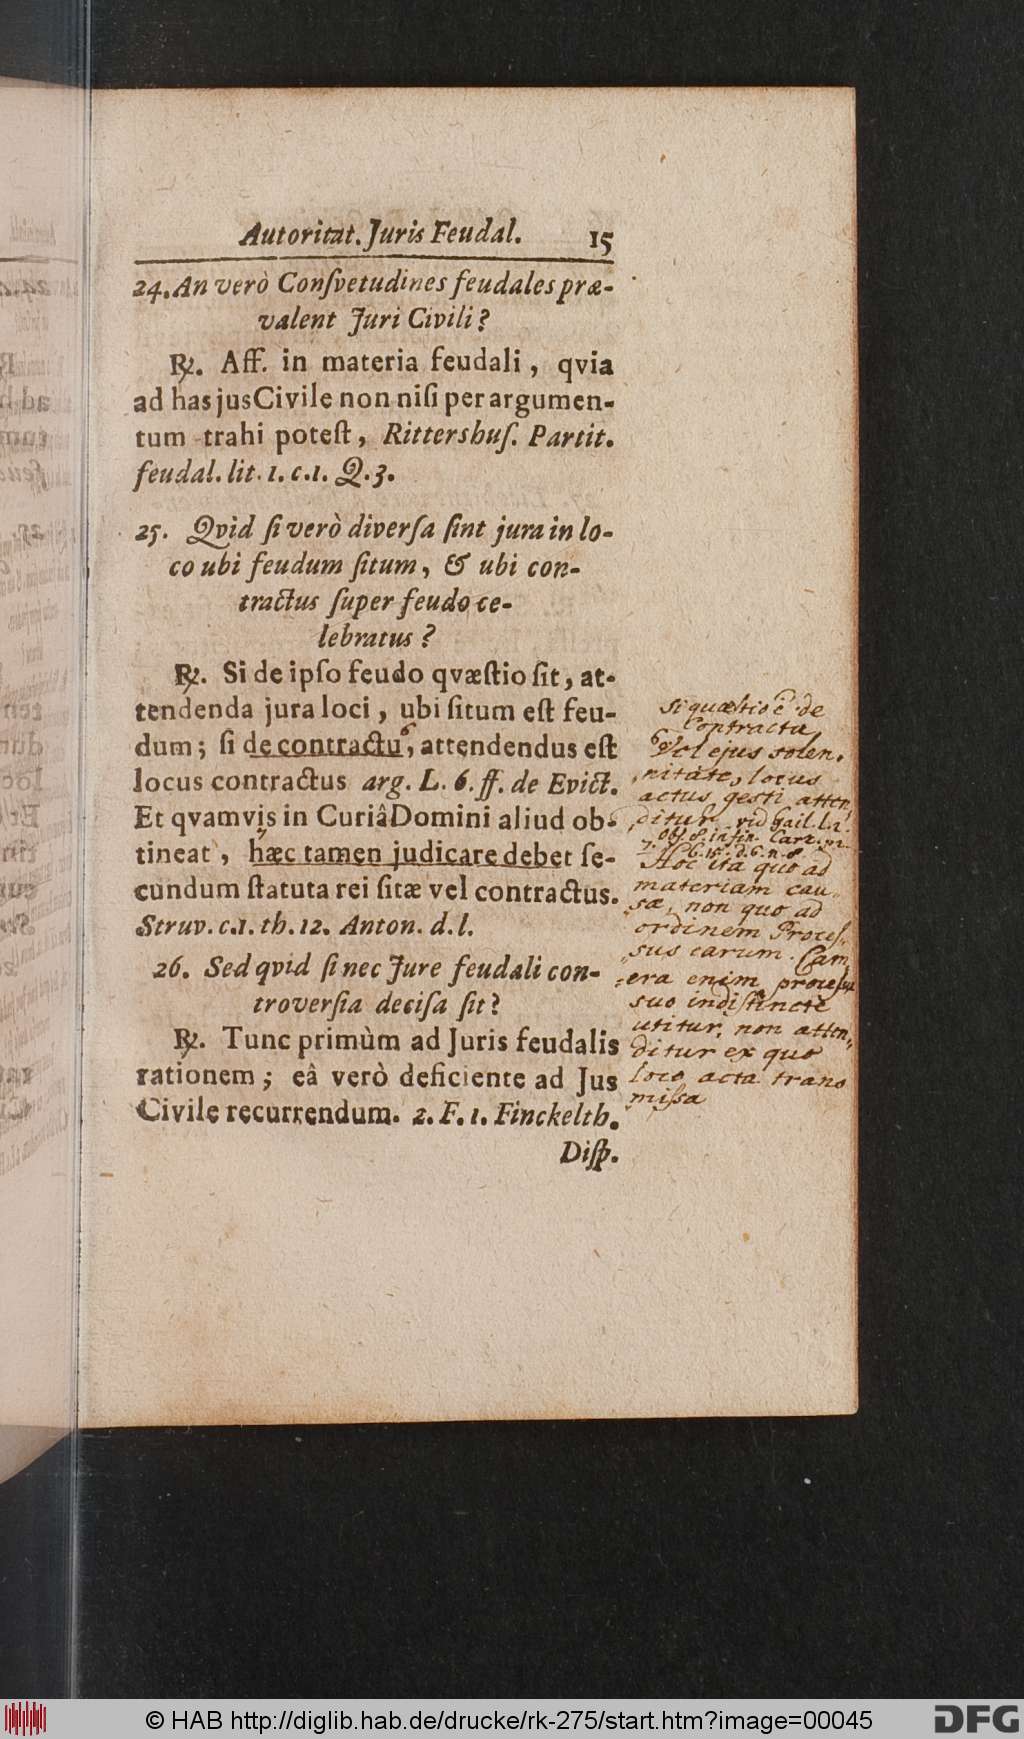 Autoritat. Juris Feudal. 15
24. An verò Conſvetudines feudales præ-
valent Juri Civili?
℞. Aff. in materia feudali, qvia
ad has jus Civile non niſi per argumen-
tum trahi poteſt, Rittershuſ. Partit.
feudal. lit. 1. c. 1. Q. 3.
25. Qvid ſi verò diverſa ſint jura in lo-
co ubi feudum ſitum, & ubi con-
tractus ſuper feudo ce-
lebratus?
℞. Si de ipſo feudo qvæſtio ſit, at-
tendenda jura loci, ubi ſitum eſt feu-
dum; ſi de contractu 6, attendendus eſt
locus contractus arg. L. 6. ff. de Evict.
Et qvamvis in Curiâ Domini aliud ob-
tineat, 7 hæc tamen judicare debet ſe-
cundum ſtatuta rei ſitæ vel contractus.
Struv. c. 1. th. 12. Anton. d. l.
26. Sed qvid ſi nec Jure feudali con-
troverſia deciſa ſit?
℞. Tunc primùm ad Juris feudalis
rationem; eâ verò deficiente ad Jus
Civile recurrendum. 2. F. 1. Finckelth.
Diſp.
Si quæstio ē de
Contractu
6 Vel ejus solen-
nitate, locus
actus gesti atten
ditur vid Gail. L. 2.
Obſ. 8. in fin. Carz.
7. Hoc ita quo ad
materiam cau-
sæ, non quo ad
ordinem Proceſ-
sus earum. Cam
era enim proceſsu
suo indiſtinctè
utitur, non atten-
ditur ex quo
loco acta trans
miſsa
© HAB http://diglib.hab.de/drucke/rk-275/start.htm?image=00045
DFG